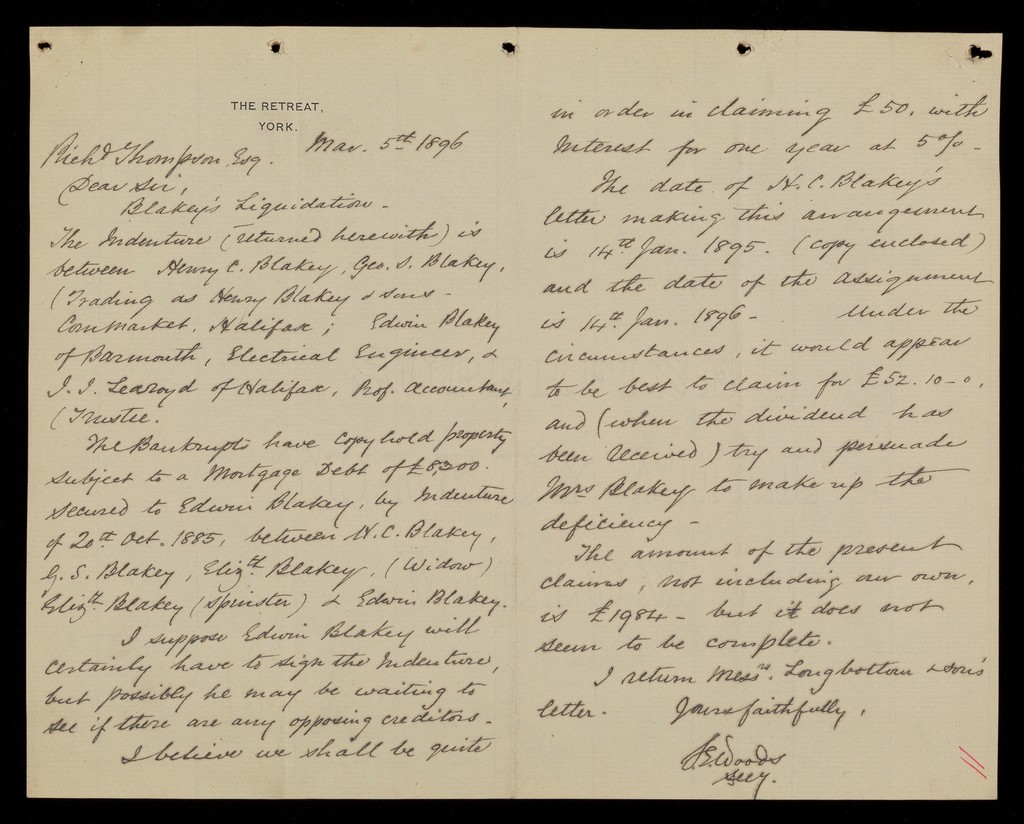 THE RETREAT,
YORK.
Mar. 5th 1896
Richd Thompson Esq.
Dear Sir,
Blakey's Liquidation -
The Indenture (returned herewith) is
between Henry C. Blakey, Geo. S. Blakey,
(Trading as Henry Blakey & sons -
Cornmarket, Halifax; Edwin Blakey
of Barmouth, Electrical Engineer, &
I. I. Learoyd of Halifax, Prof. Accountant,
(Trustee.
The Bankrupts have copyhold property
subject to a Mortgage Debt of £8,300.
secured to Edwin Blakey, by Indenture
of 20th Oct. 1885, between H. C. Blakey,
G. S. Blakey, Elizth Blakey, (Widow)
Elizth Blakey (Spinster) & Edwin Blakey.
I suppose Edwin Blakey will
certainly have to sign the Indenture,
but possibly he may be waiting to
see if there are any opposing creditors.
I believe we shall be quite
in order in claiming £50. with
Interest for one year at 5% -
The date of H. C. Blakey's
letter making this arrangement
is 14th Jan. 1895. (copy enclosed)
and the date of the assignment
is 14th Jan. 1896 - Under the
circumstances, it would appear
to be best to claim for £52. 10 - 0,
and (when the dividend has
been received) try and persuade
Mrs Blakey to make up the
deficiency -
The amount of the present
claims, not including our own,
is £1984 - but it does not
seem to be complete.
I return Messrs. Longbottom & Son's
letter. Yours faithfully,
J. E. Woods
Secy.